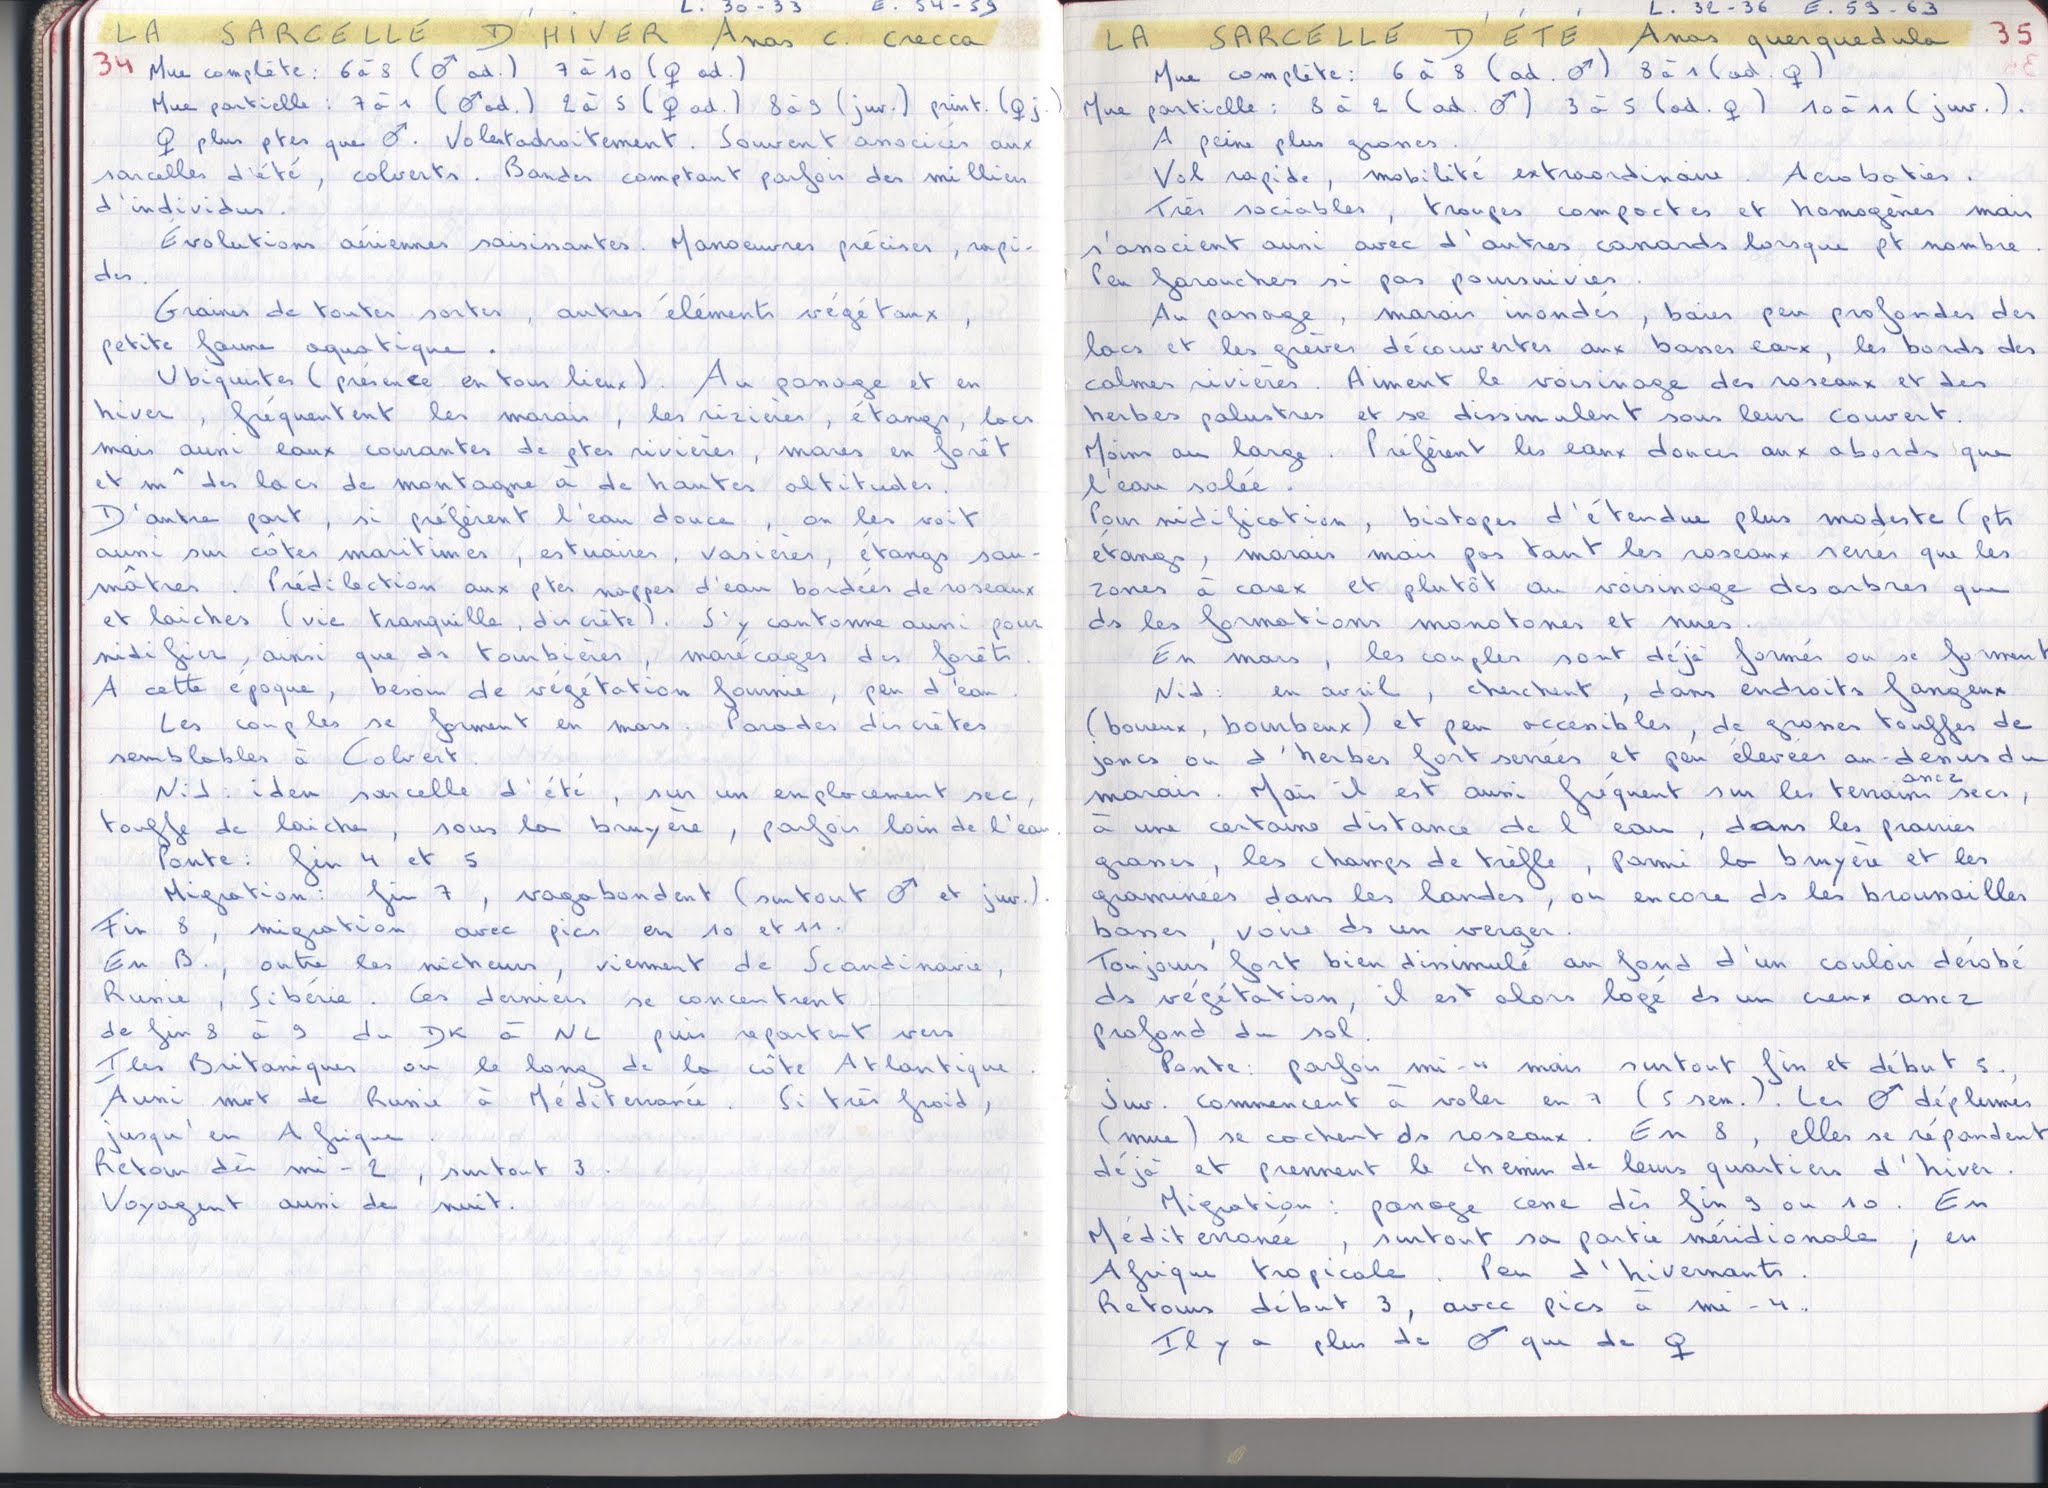 L. 30-33 E. 54-59
LA SARCELLE D'HIVER Anas c. crecca
34 Mue complète : 6 à 8 (♂ ad.) 7 à 10 (♀ ad.)
Mue partielle : 7 à 1 (♂ ad.) 2 à 5 (♀ ad.) 8 à 9 (juv.) print. (♀ j.)
♀ plus ptes que ♂. Volent adroitement. Souvent associées aux
sarcelles d'été, colverts. Bandes comptant parfois des milliers
d'individus.
Évolutions aériennes saisissantes. Manoeuvres précises, rapi-
des.
Graines de toutes sortes, autres éléments végétaux,
petite faune aquatique.
Ubiquistes (présence en tous lieux). Au passage et en
hiver, fréquentent les marais, les rizières, étangs, lacs
mais aussi eaux courantes de ptes rivières, mares en forêt
et m^ des lacs de montagne à de hautes altitudes.
D'autre part, si préfèrent l'eau douce, on les voit
aussi sur côtes maritimes, estuaires, vasières, étangs sau-
mâtres. Prédilection aux ptes nappes d'eau bordées de roseaux
et laiches (vie tranquille, discrète). S'y cantonne aussi pour
nidifier, ainsi que ds tourbières, marécages des forêts.
A cette époque, besoin de végétation fournie, peu d'eau.
Les couples se forment en mars. Parades discrètes
semblables à Colvert.
Nid : idem sarcelle d'été, sur un emplacement sec,
touffe de laiche, sous la bruyère, parfois loin de l'eau.
Ponte : fin 4 et 5
Migration : fin 7, vagabondent (surtout ♂ et juv.).
Fin 8, migration avec pics en 10 et 11.
En B., outre les nicheurs, viennent de Scandinavie,
Russie, Sibérie. Ces derniers se concentrent
de fin 8 à 9 du DK à NL puis repartent vers
Iles Britaniques ou le long de la côte Atlantique.
Aussi mvt de Russie à Méditerranée. Si très froid,
jusqu'en Afrique.
Retour dès mi-2, surtout 3.
Voyagent aussi de nuit.
L. 32-36 E. 59-63
LA SARCELLE D'ÉTÉ Anas querquedula 35
Mue complète : 6 à 8 (ad. ♂) 8 à 1 (ad. ♀)
Mue partielle : 8 à 2 (ad. ♂) 3 à 5 (ad. ♀) 10 à 11 (juv.).
A peine plus grosses.
Vol rapide, mobilité extraordinaire. Acrobaties.
Très sociables, troupes compactes et homogènes mais
s'associent aussi avec d'autres canards lorsque pt nombre.
Peu farouches si pas poursuivies.
Au passage, marais inondés, baies peu profondes des
lacs et les grèves découvertes aux basses eaux, les bords des
calmes rivières. Aiment le voisinage des roseaux et des
herbes palustres et se dissimulent sous leur couvert.
Moins au large. Préfèrent les eaux douces aux abords que
l'eau salée.
Pour nidification, biotopes d'étendue plus modeste (pts
étangs, marais mais pas tant les roseaux serrés que les
zones à carex et plutôt au voisinage des arbres que
ds les formations monotones et nues.
En mars, les couples sont déjà formés ou se forment
Nid : en avril, cherchent, dans endroits fangeux
(boueux, bourbeux) et peu accessibles, de grosses touffes de
joncs ou d'herbes fort serrées et peu élevées au-dessus du
marais. Mais il est aussi fréquent sur les terrains assez secs,
à une certaine distance de l'eau, dans les prairies
grasses, les champs de trèfle, parmi la bruyère et les
graminées dans les landes, ou encore ds les broussailles
basses, voire ds un verger.
Toujours fort bien dissimulé au fond d'un couloir dérobé
ds végétation, il est alors logé ds un creux assez
profond du sol.
Ponte : parfois mi-4 mais surtout fin et début 5.
Juv. commencent à voler en 7 (5 sem.). Les ♂ déplumés
(mue) se cachent ds roseaux. En 8, elles se répandent
déjà et prennent le chemin de leurs quartiers d'hiver.
Migration : passage cesse dès fin 9 ou 10. En
Méditerranée, surtout sa partie méridionale ; en
Afrique tropicale. Peu d'hivernants.
Retours début 3, avec pics à mi-4.
Il y a plus de ♂ que de ♀